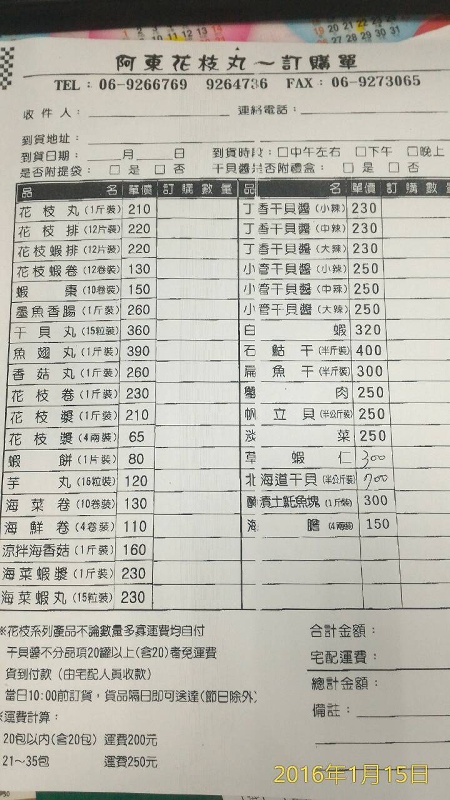 阿東花枝丸～訂購單
TEL：06-9266769 9264736 FAX：06-9273065
收件人： 連絡電話：
到貨地址：
到貨日期： 月 日 到貨時段：□中午左右 □下午 □晚上
是否附提袋：□ 是 □ 否 干貝醬是否附禮盒：□ 是 □ 否
品名 單價 訂購數量 品名 單價 訂購數量
花枝丸(1斤裝) 210 丁香干貝醬(小辣) 230
花枝排(12片裝) 220 丁香干貝醬(中辣) 230
花枝蝦排(12片裝) 220 丁香干貝醬(大辣) 230
花枝蝦卷(12卷裝) 130 小管干貝醬(小辣) 250
蝦棗(10卷裝) 150 小管干貝醬(中辣) 250
墨魚香腸(1斤裝) 260 小管干貝醬(大辣) 250
干貝丸(15粒裝) 360 白蝦 320
魚翅丸(1斤裝) 390 石鮔干(半斤裝) 400
香菇丸(1斤裝) 260 扁魚干(半斤裝) 300
花枝卷(1斤裝) 230 蟹肉 250
花枝漿(1斤裝) 210 帆立貝(半公斤裝) 250
花枝漿(4兩裝) 65 淡菜 250
蝦餅(1片裝) 80 草蝦仁 300
芋丸(16粒裝) 120 北海道干貝(半公斤裝) 700
海菜卷(10卷裝) 130 醃漬土魠魚塊(1斤裝) 300
海鮮卷(4卷裝) 110 海膽(4兩裝) 150
涼拌海香菇(1斤裝) 160
海菜蝦漿(1斤裝) 230
海菜蝦丸(15粒裝) 230
※花枝系列產品不論數量多寡運費均自付 合計金額：
干貝醬不分品項20罐以上(含20)者免運費 宅配運費：
貨到付款 (由宅配人員收款) 總計金額：
當日10:00前訂貨,貨品隔日即可送達(節日除外) 備註：
※運費計算：
20包以內(含20包) 運費200元
21～35包 運費250元
2016年1月15日